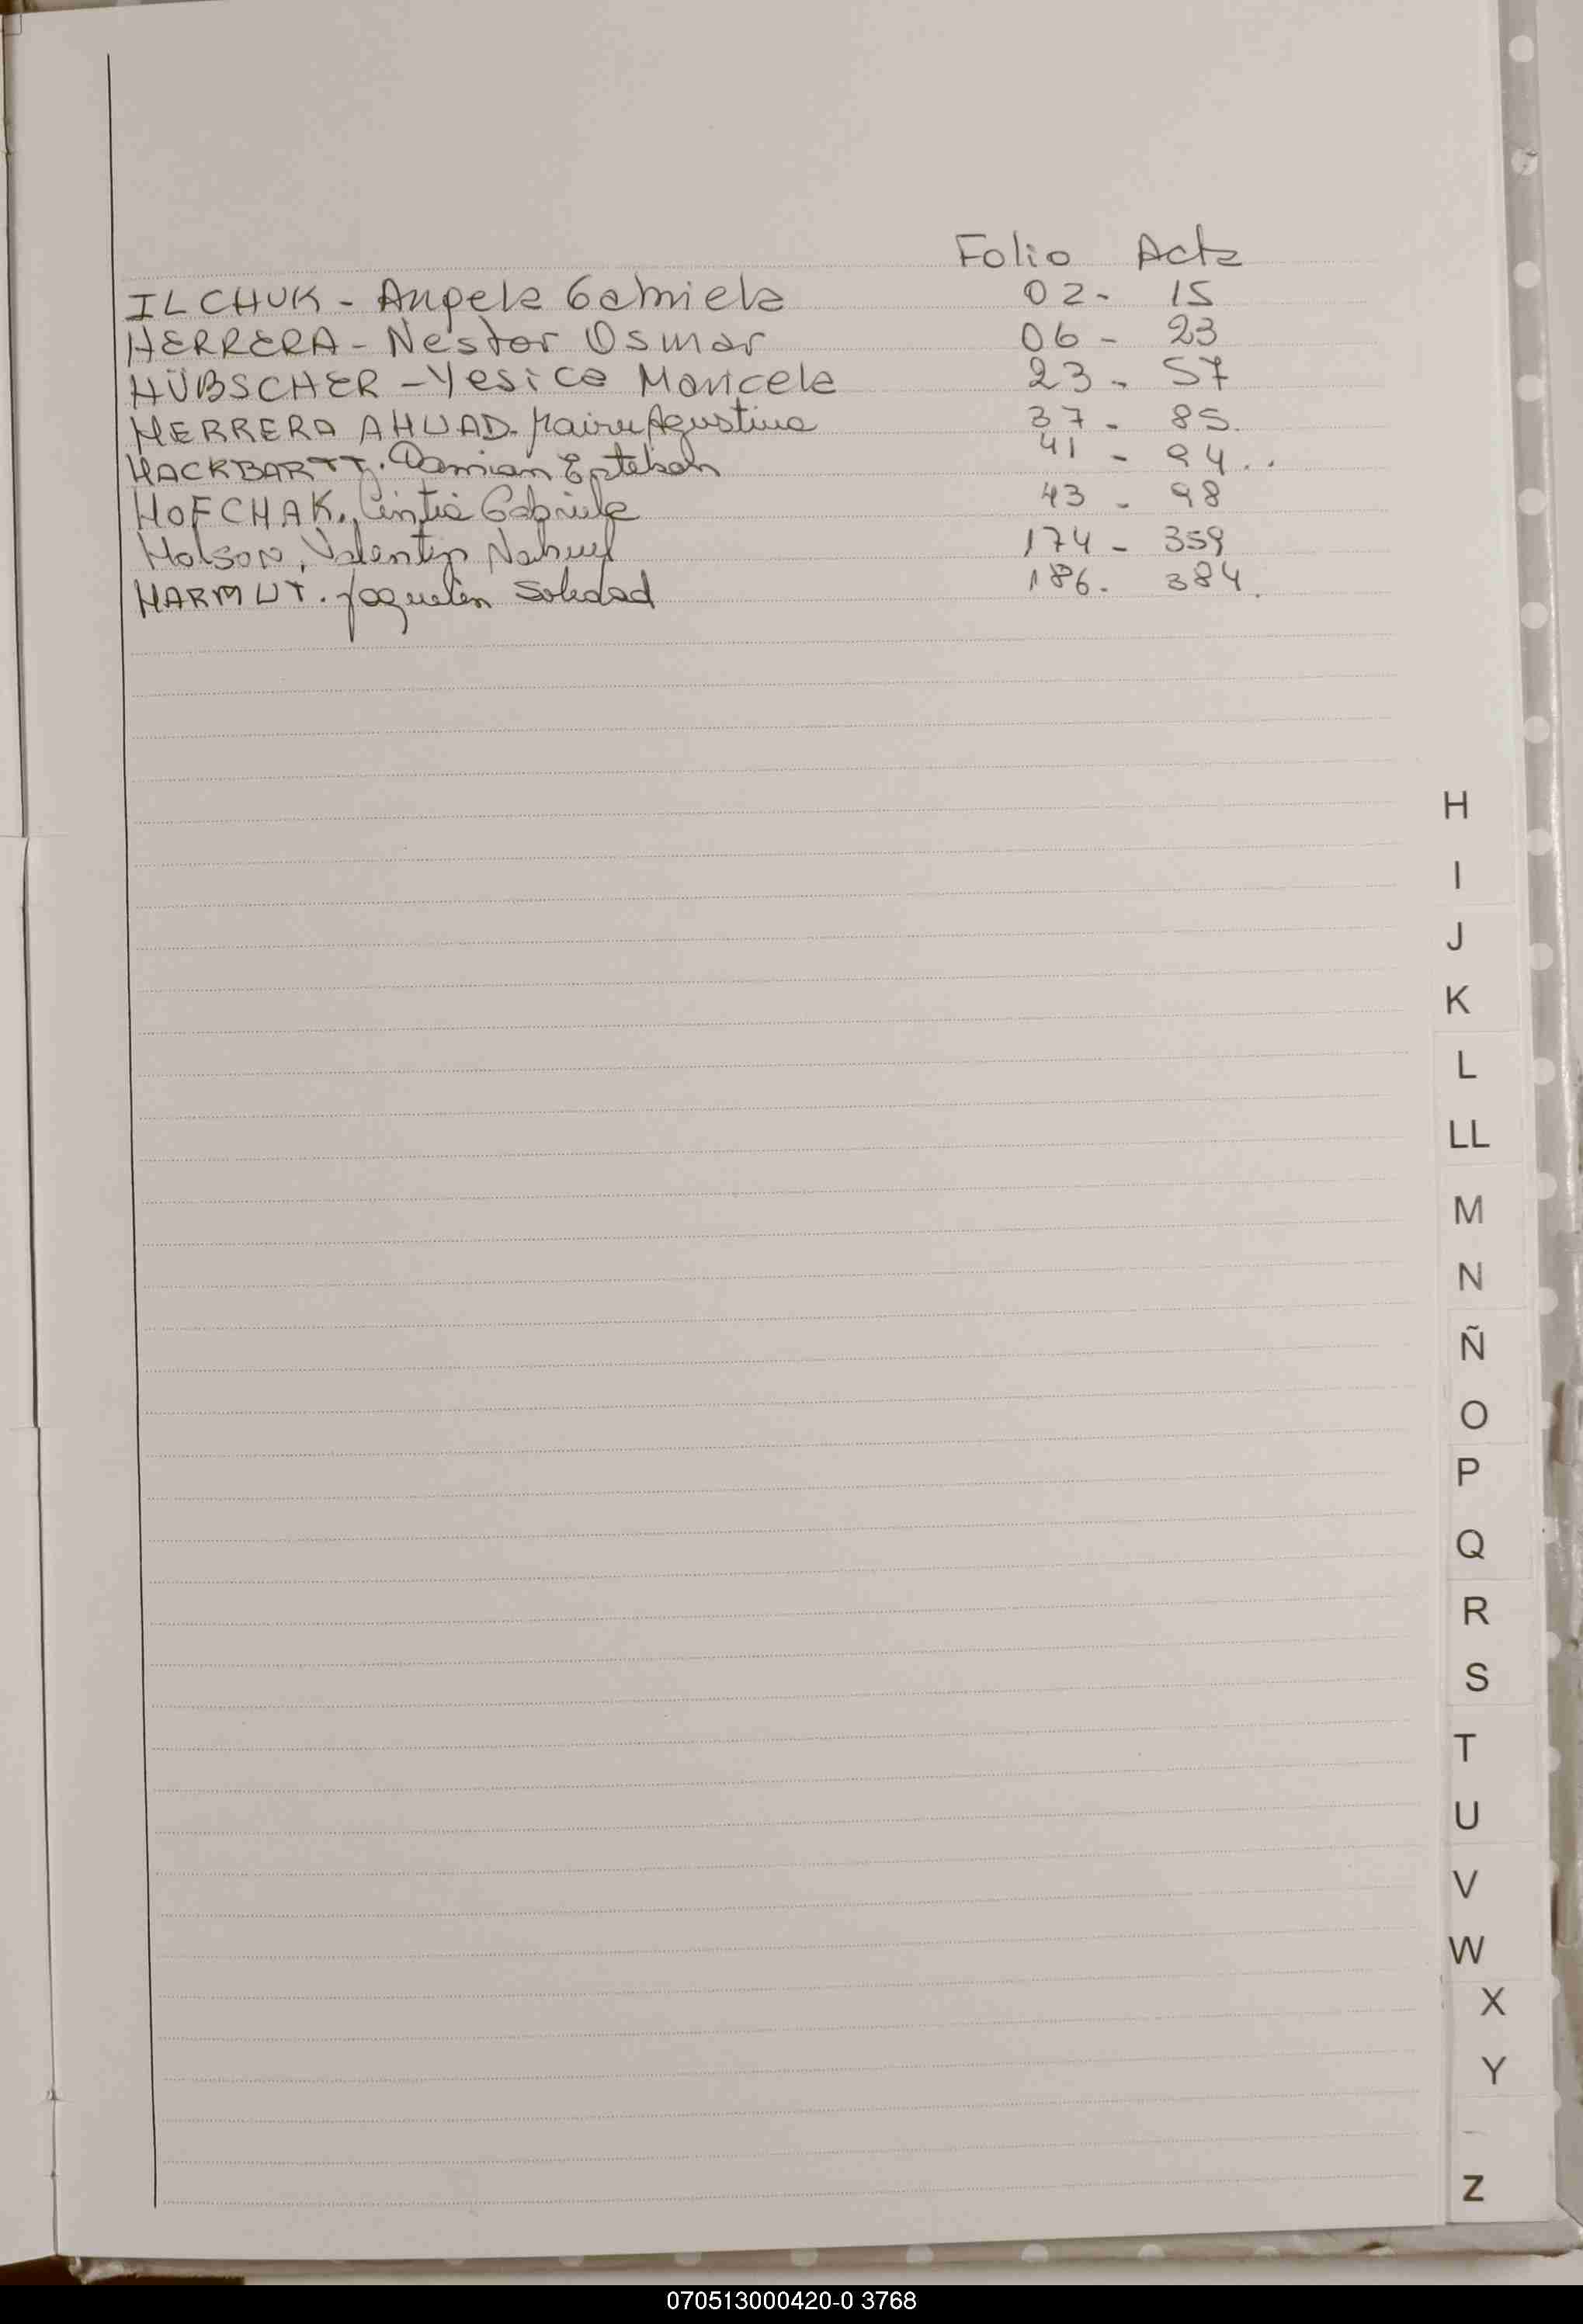 Folio Acta
ILCHUK - Angela Gabriela 02- 15
HERRERA - Nestor Osmar 06 - 23
HÜBSCHER - Yesica Maricela 23 - 57
HERRERA AHUAD. Agustina 37 - 85.
HACKBARTT. Damian Esteban 41 - 94..
HOFCHAK., Cintia Gabriela 43 - 98
Holson, Valentin Nahuel 174 - 359
HARMUT. Jaquelin Soledad 186. 384.
H
I
J
K
L
LL
M
N
Ñ
O
P
Q
R
S
T
U
V
W
X
Y
Z
070513000420-0 3768